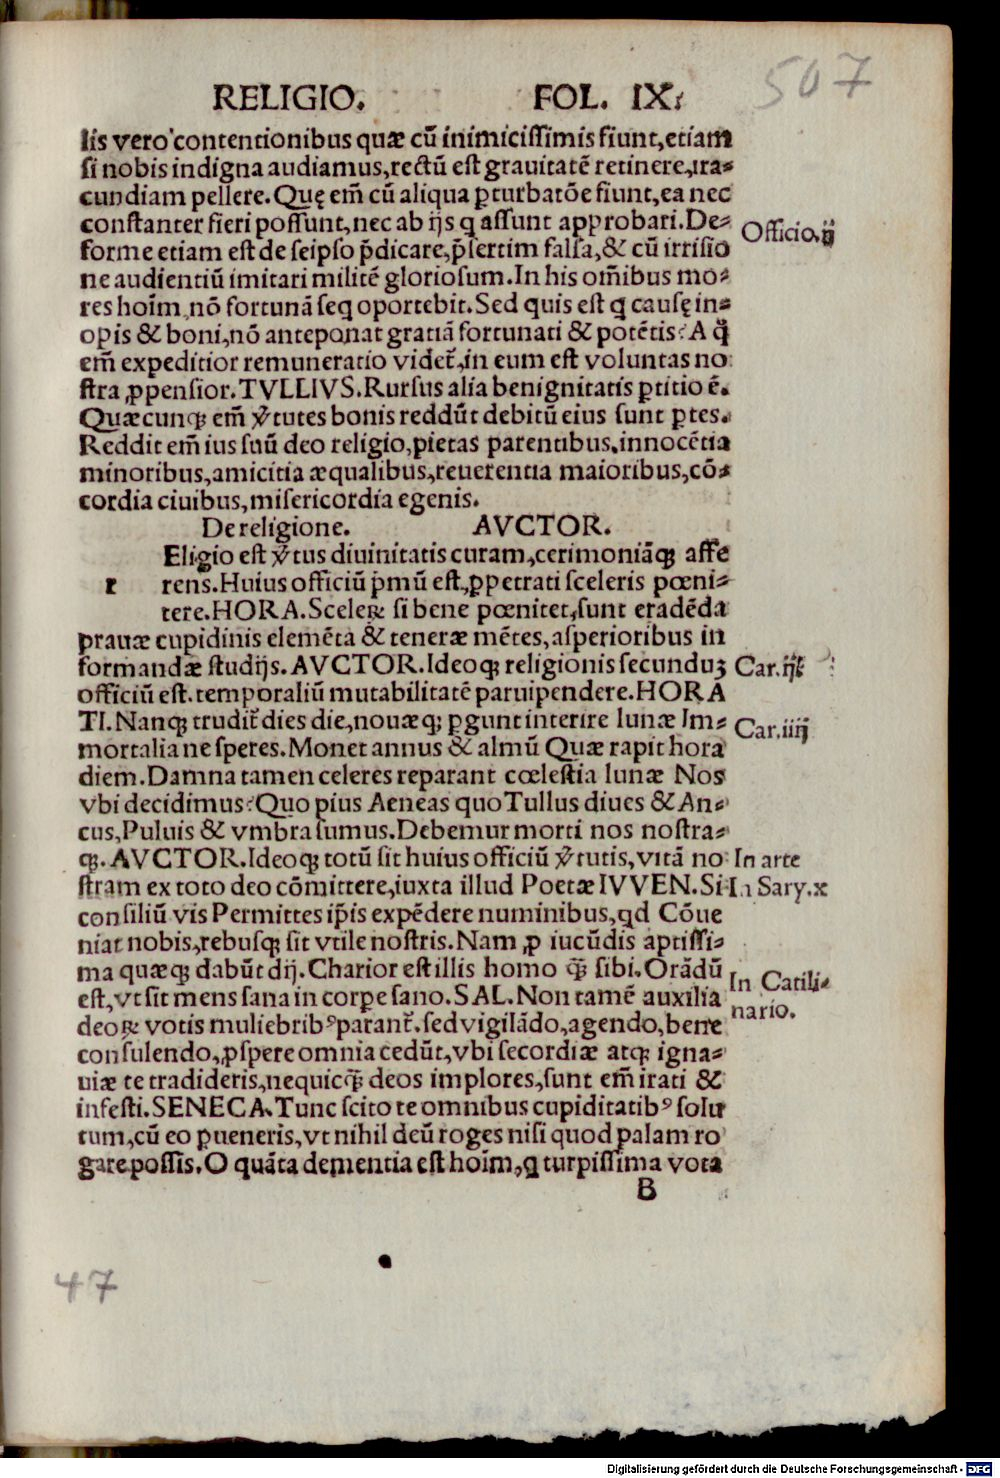 507
RELIGIO. FOL. IX.
lis vero contentionibus quæ cū inimicissimis fiunt, etiam
si nobis indigna audiamus, rectū est grauitatē retinere, ira⸗
cundiam pellere. Quę em̄ cū aliqua ꝑturbatōe fiunt, ea nec
constanter fieri possunt, nec ab ijs q assunt approbari. De⸗
forme etiam est de seipso p̄dicare, p̄sertim falsa, & cū irrisio
ne audientiū imitari militē gloriosum. In his om̄ibus mo⸗
res hoīm, nō fortunā seq oportebit. Sed quis est q causę in⸗
opis & boni, nō anteponat gratiā fortunati & potētis? A q̄
em̄ expeditior remuneratio videt̄, in eum est voluntas no
stra ꝓpensior. TVLLIVS. Rursus alia benignitatis ꝑtitio ē.
Quæcunqꝫ em̄ v̄tutes bonis reddūt debitū eius sunt ꝑtes.
Reddit em̄ ius suū deo religio, pietas parentibus, innocētia
minoribus, amicitia æqualibus, reuerentia maioribus, cō⸗
cordia ciuibus, misericordia egenis.
De religione. AVCTOR.
Eligio est v̄tus diuinitatis curam, cerimoniāqꝫ affe
r rens. Huius officiū p̄mū est, ꝑpetrati sceleris pœni⸗
tere. HORA. Sceleꝝ si bene pœnitet, sunt eradēda
prauæ cupidinis elemēta & teneræ mētes, asperioribus in
formandæ studijs. AVCTOR. Ideoqꝫ religionis secunduꝫ
officiū est. temporaliū mutabilitatē paruipendere. HORA
TI. Nanqꝫ trudit̄ dies die, nouæqꝫ ꝑgunt interire lunæ Im⸗
mortalia ne speres. Monet annus & almū Quæ rapit hora
diem. Damna tamen celeres reparant cœlestia lunæ Nos
vbi decidimus? Quo pius Aeneas quo Tullus diues & An⸗
cus, Puluis & vmbra sumus. Debemur morti nos nostra⸗
qꝫ. AVCTOR. Ideoqꝫ totū sit huius officiū v̄tutis, vitā no
stram ex toto deo cōmittere, iuxta illud Poetæ IVVEN. Si
consiliū vis Permittes ip̄is expēdere numinibus, qd Cōue
niat nobis, rebusqꝫ sit vtile nostris. Nam ꝓ iucūdis aptissi⸗
ma quæqꝫ dabūt dij. Charior est illis homo qꝫ̄ sibi. Orādū
est, vt sit mens sana in corꝑe sano. SAL. Non tamē auxilia
deoꝝ votis muliebribꝰ parant̄. sed vigilādo, agendo, bene
consulendo, ꝓspere omnia cedūt, vbi secordiæ atqꝫ igna⸗
uiæ te tradideris, nequicqꝫ̄ deos implores, sunt em̄ irati &
infesti. SENECA. Tunc scito te omnibus cupiditatibꝰ solu
tum, cū eo ꝑueneris, vt nihil deū roges nisi quod palam ro
gare possis. O quāta dementia est hoīm, q turpissima vota
B
Officio. ij
Car. iij
Car. iiij
In arte
In Sary. x
In Catili⸗
nario.
47
Digitalisierung gefördert durch die Deutsche Forschungsgemeinschaft - DFG